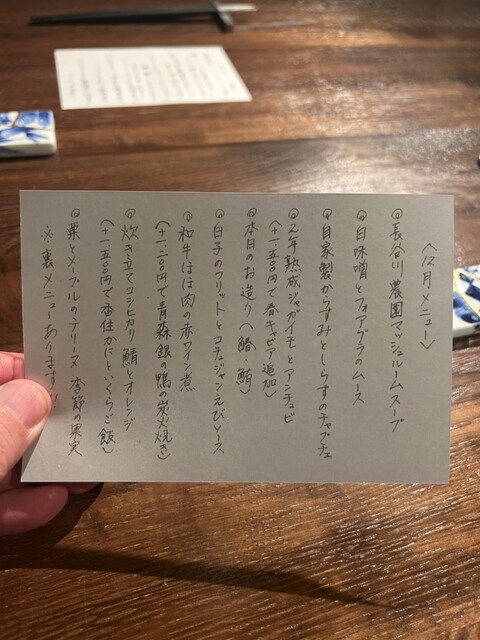 〈12月メニュー〉
◎長谷川農園マッシュルームスープ
◎白味噌とフォアグラのムース
◎自家製からすみとしらすのチャプチェ
◎2年熟成ジャガイモとアンチョビ
（+一、五〇〇円で春キャビア追加）
◎本日のお造り〈鰆、鮪〉
◎白子のフリットとコチュジャンえびソース
◎和牛ほほ肉の赤ワイン煮
（+一、二〇〇円で青森銀の鴨の炭火焼き）
◎炊き立てコシヒカリ 鯖とオレンジ
（+一、五〇〇円で香住かにといくらご飯）
◎栗とメープルのテリーヌ 季節の果実
※裏メニューあります!!